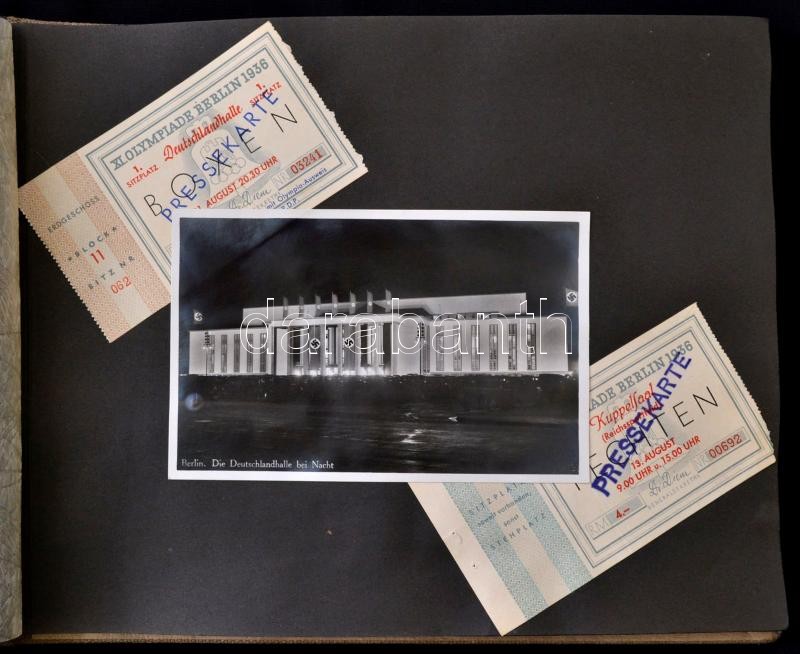 XI. OLYMPIADE BERLIN 1936
1. SITZPLATZ Deutschlandhalle 1. SITZPLATZ
BOXEN
PRESSEKARTE
AUGUST 20.30 UHR
NR 03241
Dr. Diem
mit Olympia-Ausweis
ERDGESCHOSS
*BLOCK*
11
SITZ NR.
062
darabanth
Berlin. Die Deutschlandhalle bei Nacht
BERLIN 1936
Kuppelsaal
PRESSEKARTE
13. AUGUST
9.00 UHR u. 15.00 UHR
NR 00692
Dr. Diem
GENERALSEKRETÄR
RM 4.-
soweit vorhanden,
sonst
STEHPLATZ